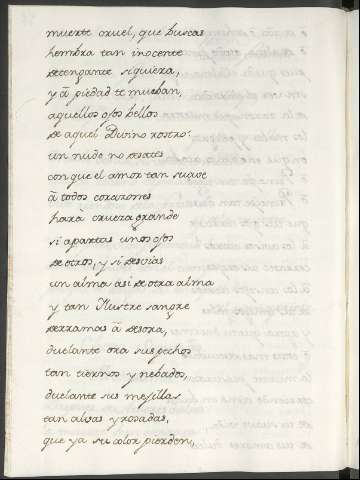 muerte cruel, que buscas
hembra tan inocente
detengante siquiera,
y â piedad te mueban,
aquellos ojos bellos
de aquel Divino rostro:
un nudo no desates
con que el amor tan suave
â todos corazones
hará crueza grande
si apartas unos ojos
de otros, y si desvias
un alma asi de otra alma
y tan Ilustre sangre
derramas â desora,
duelante ora sus pechos
tan tiernos y nebados,
duelante sus mejillas
tan alisas y rosadas,
que ya su color pierden,